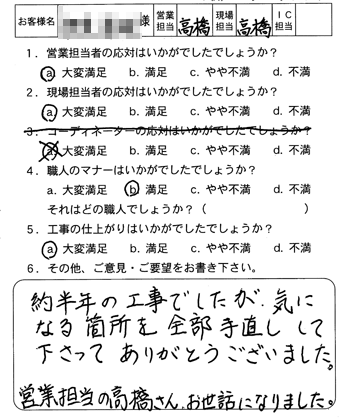 お客様名 様 営業担当 高橋 現場担当 高橋 IC担当
1．営業担当者の応対はいかがでしたでしょうか？
a. 大変満足 b. 満足 c. やや不満 d. 不満
2．現場担当者の応対はいかがでしたでしょうか？
a. 大変満足 b. 満足 c. やや不満 d. 不満
3．コーディネーターの応対はいかがでしたでしょうか？
a. 大変満足 b. 満足 c. やや不満 d. 不満
4．職人のマナーはいかがでしたでしょうか？
a. 大変満足 b. 満足 c. やや不満 d. 不満
それはどの職人でしょうか？（ ）
5．工事の仕上がりはいかがでしたでしょうか？
a. 大変満足 b. 満足 c. やや不満 d. 不満
6．その他、ご意見・ご要望をお書き下さい。
約半年の工事でしたが、気に
なる箇所を全部手直しして
下さってありがとうございました。
営業担当の高橋さん、お世話になりました。